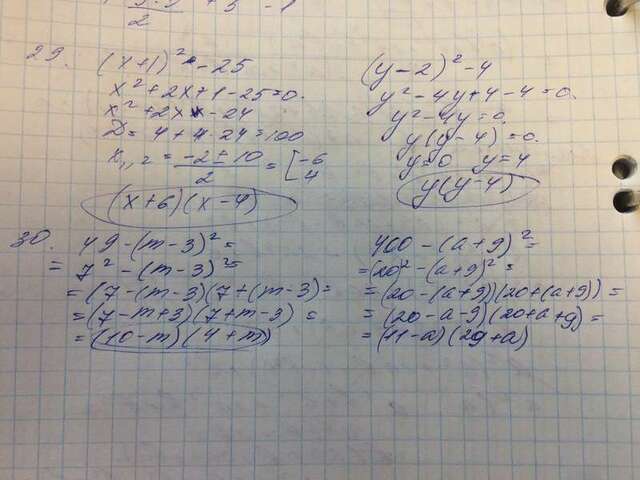 29. (x+1)² - 25
x² + 2x + 1 - 25 = 0.
x² + 2x - 24
D = 4 + 4·24 = 100
x₁,₂ = (-2 ± 10)/2 = [-6
4
(x+6)(x-4)
(y-2)² - 4
y² - 4y + 4 - 4 = 0.
y² - 4y = 0.
y(y-4) = 0.
y=0 y=4
y(y-4)
30. 49 - (m-3)² =
= 7² - (m-3)² =
= (7-(m-3)(7+(m-3) =
= (7-m+3)(7+m-3) =
= (10-m)(4+m)
400 - (a+9)² =
= 20² - (a+9)² =
= (20-(a+9))(20+(a+9)) =
= (20-a-9)(20+a+9) =
= (11-a)(29+a)